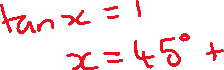 tan x = 1
x = 45° +